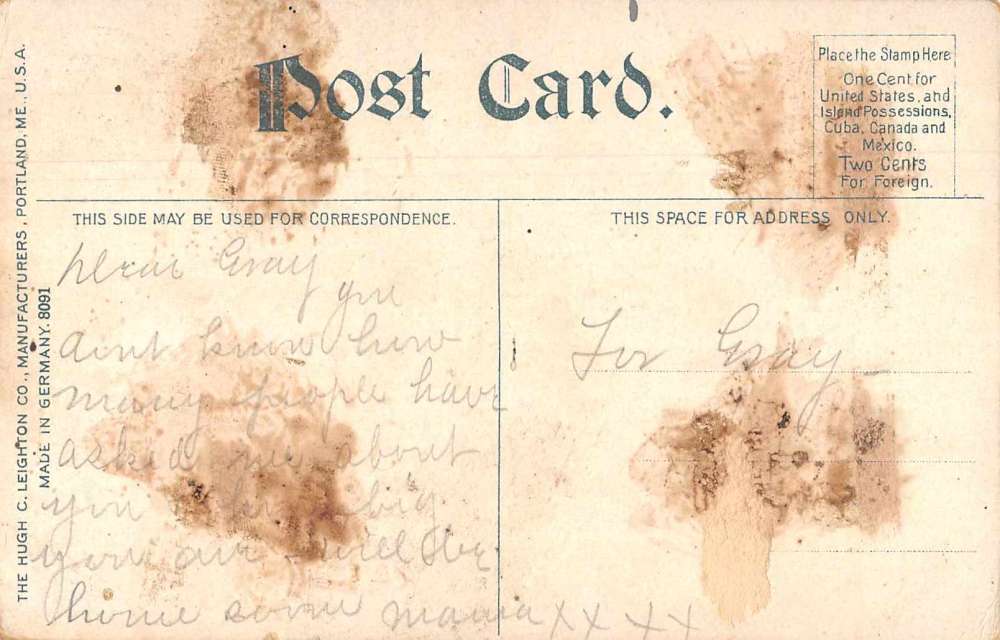 Post Card.
Place the Stamp Here
One Cent for
United States, and
Island Possessions,
Cuba, Canada and
Mexico.
Two Cents
For Foreign.
THE HUGH C. LEIGHTON CO., MANUFACTURERS, PORTLAND, ME., U.S.A.
MADE IN GERMANY. 8091
THIS SIDE MAY BE USED FOR CORRESPONDENCE.
Dear Gray
you
aint know how
many people have
asked me about
you how big
you are will be
home soon mama X X X X
THIS SPACE FOR ADDRESS ONLY.
For Gray